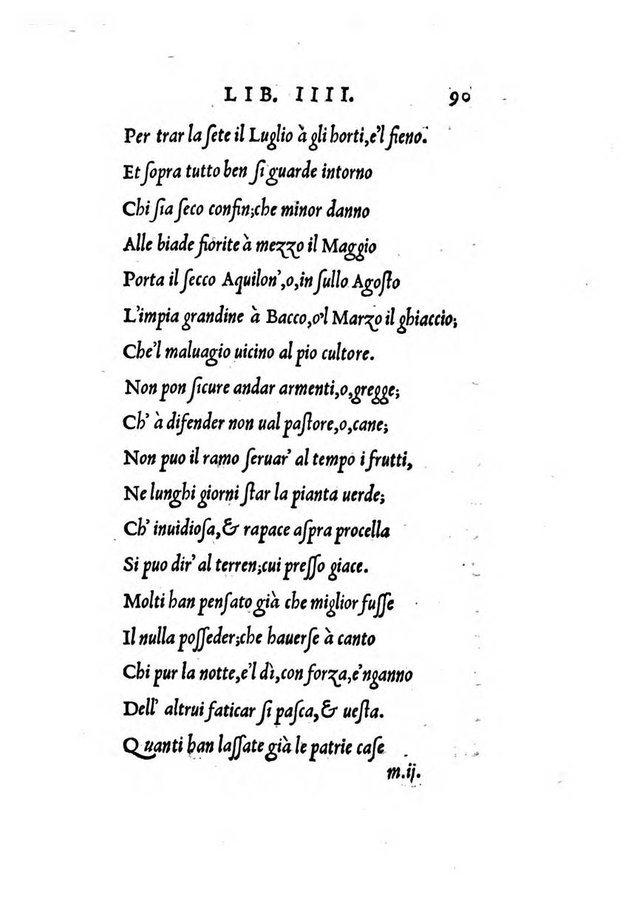 LIB. IIII. 90
Per trar la ſete il Luglio à gli horti,e'l fieno.
Et ſopra tutto ben ſi guarde intorno
Chi ſia ſeco confin;che minor danno
Alle biade fiorite à mezzo il Maggio
Porta il ſecco Aquilon',o,in ſullo Agoſto
L'impia grandine à Bacco,o'l Marzo il ghiaccio;
Che'l maluagio uicino al pio cultore.
Non pon ſicure andar armenti,o,gregge;
Ch' à difender non ual paſtore,o,cane;
Non puo il ramo ſeruar' al tempo i frutti,
Ne lunghi giorni ſtar la pianta uerde;
Ch' inuidioſa,& rapace aſpra procella
Si puo dir' al terren;cui preſſo giace.
Molti han penſato già che miglior fuſſe
Il nulla poſſeder;che hauerſe à canto
Chi pur la notte,e'l dì,con forza,e'nganno
Dell' altrui faticar ſi paſca,& ueſta.
Quanti han laſſate già le patrie caſe
m.ij.